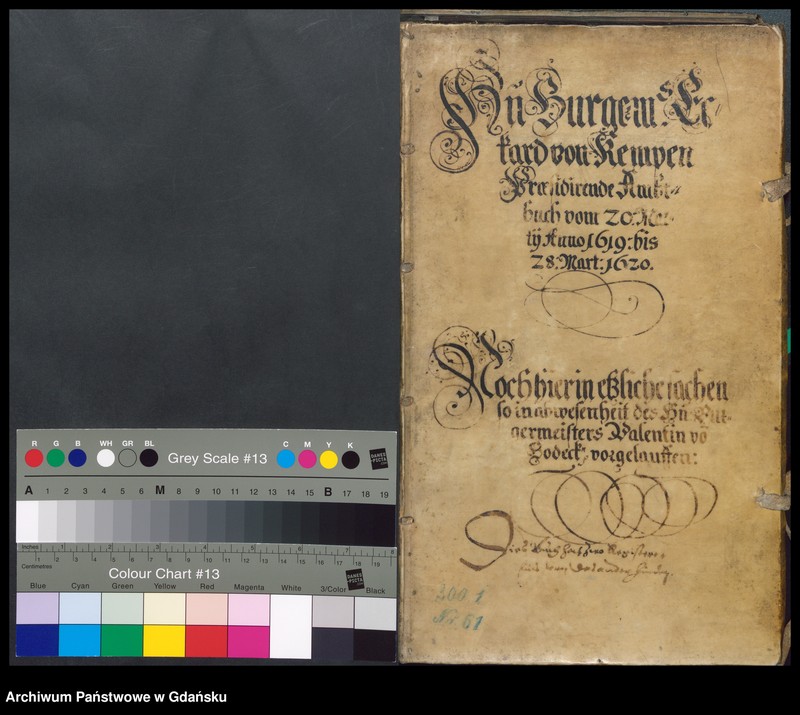 Hn̄ Burgemˢ: Ec
kard von Kempen
Præsidirende Ambt⸗
buch vom 20. Mar
tij Anno 1619: bis
28. Mart: 1620.
Noch hierin etzliche sachen
so in abwesenheit des Hn̄ Bur-
germeisters Valentin vō
Bodeck, vorgelauffen:
Dies Buch
300 1
Nr. 61
R G B WH GR BL Grey Scale #13 C M Y K
A 1 2 3 4 5 6 M 8 9 10 11 12 13 14 15 B 17 18 19
Inches 1 2 3 4 5 6 7 8
Centimetres 1 2 3 4 5 6 7 8 9 10 11 12 13 14 15 16 17 18 19
Colour Chart #13
Blue Cyan Green Yellow Red Magenta White 3/Color Black
Archiwum Państwowe w Gdańsku